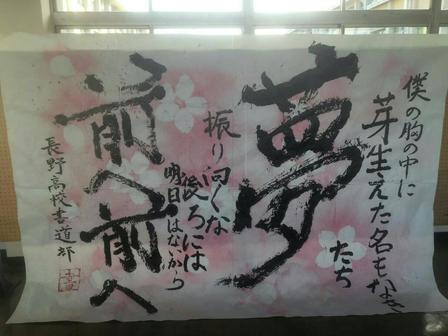 僕の胸の中に
芽生えた名もなき
夢
たち
振り向くな
後ろには
明日はないから
前へ前へ
長野高校書道部